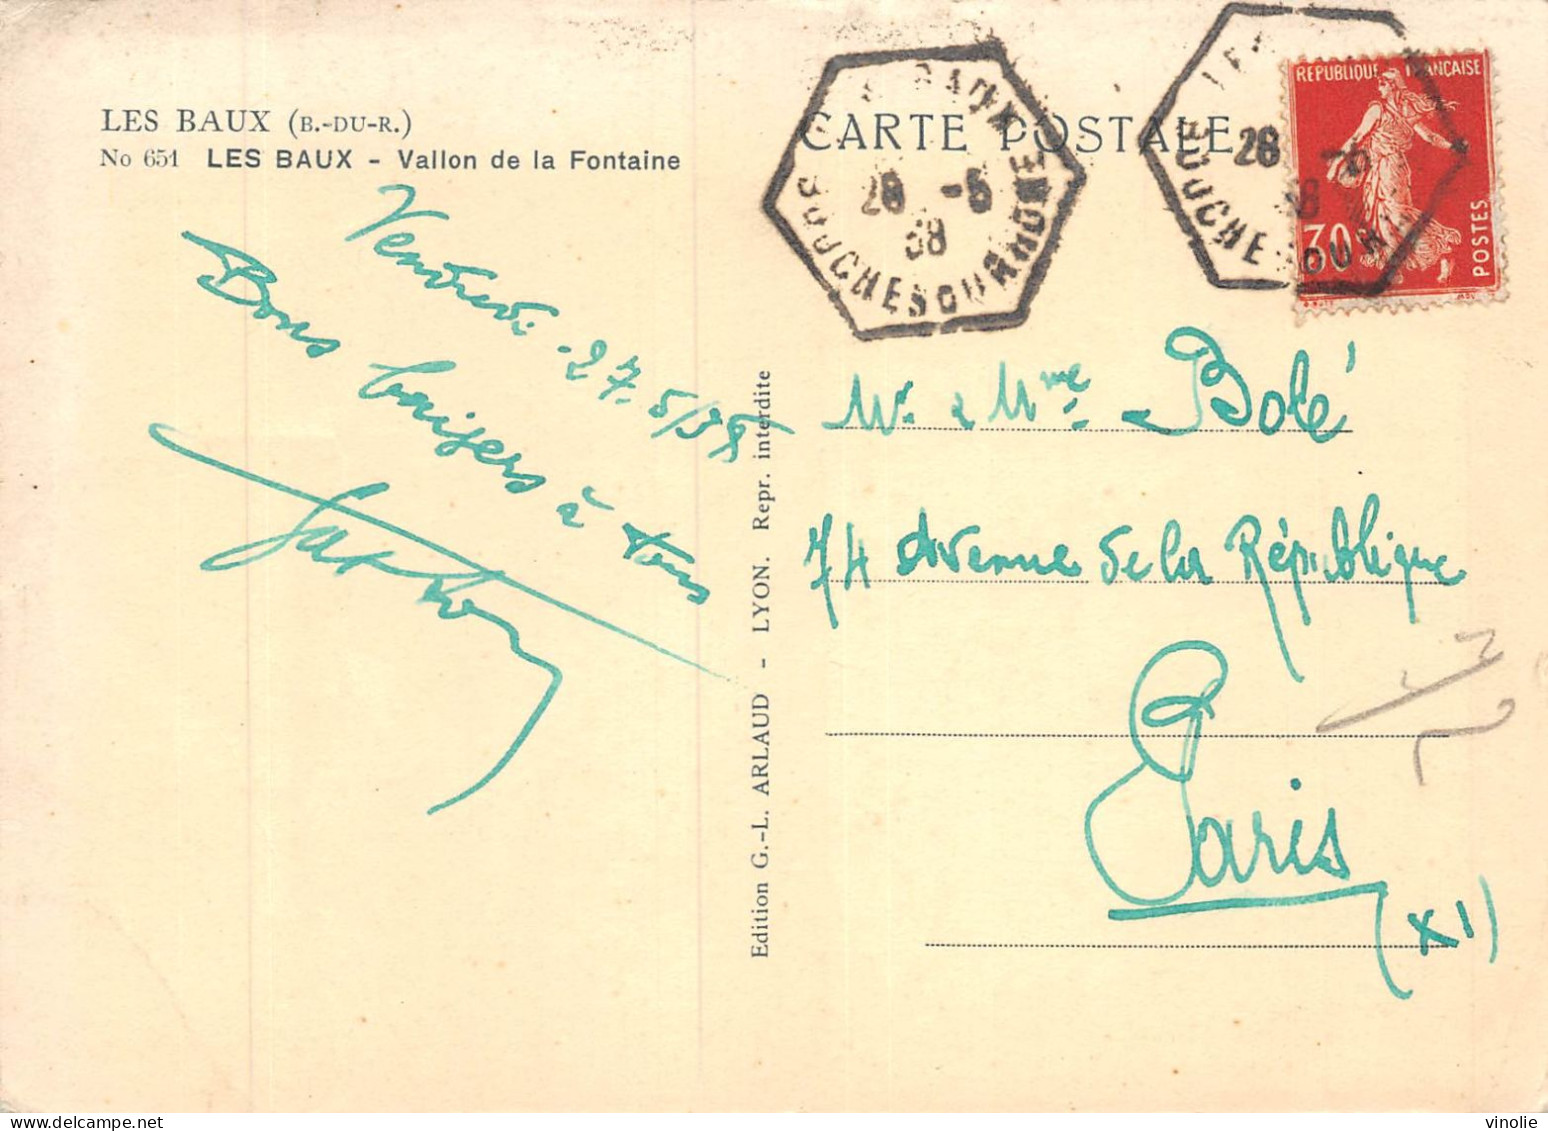 LES BAUX (B.-DU-R.)
No 651 LES BAUX - Vallon de la Fontaine
Vendredi 27.5/38
Bons baisers à tous
Edition G.-L. ARLAUD - LYON. Repr. interdite
CARTE POSTALE
BAUX
28 -5
38
BOUCHES DU RHONE
28 -5
38
BOUCHES DU R
REPUBLIQUE FRANÇAISE
30
POSTES
Mr & Mme Bolé
74 Avenue de la République
Paris
(XI)
vinolie